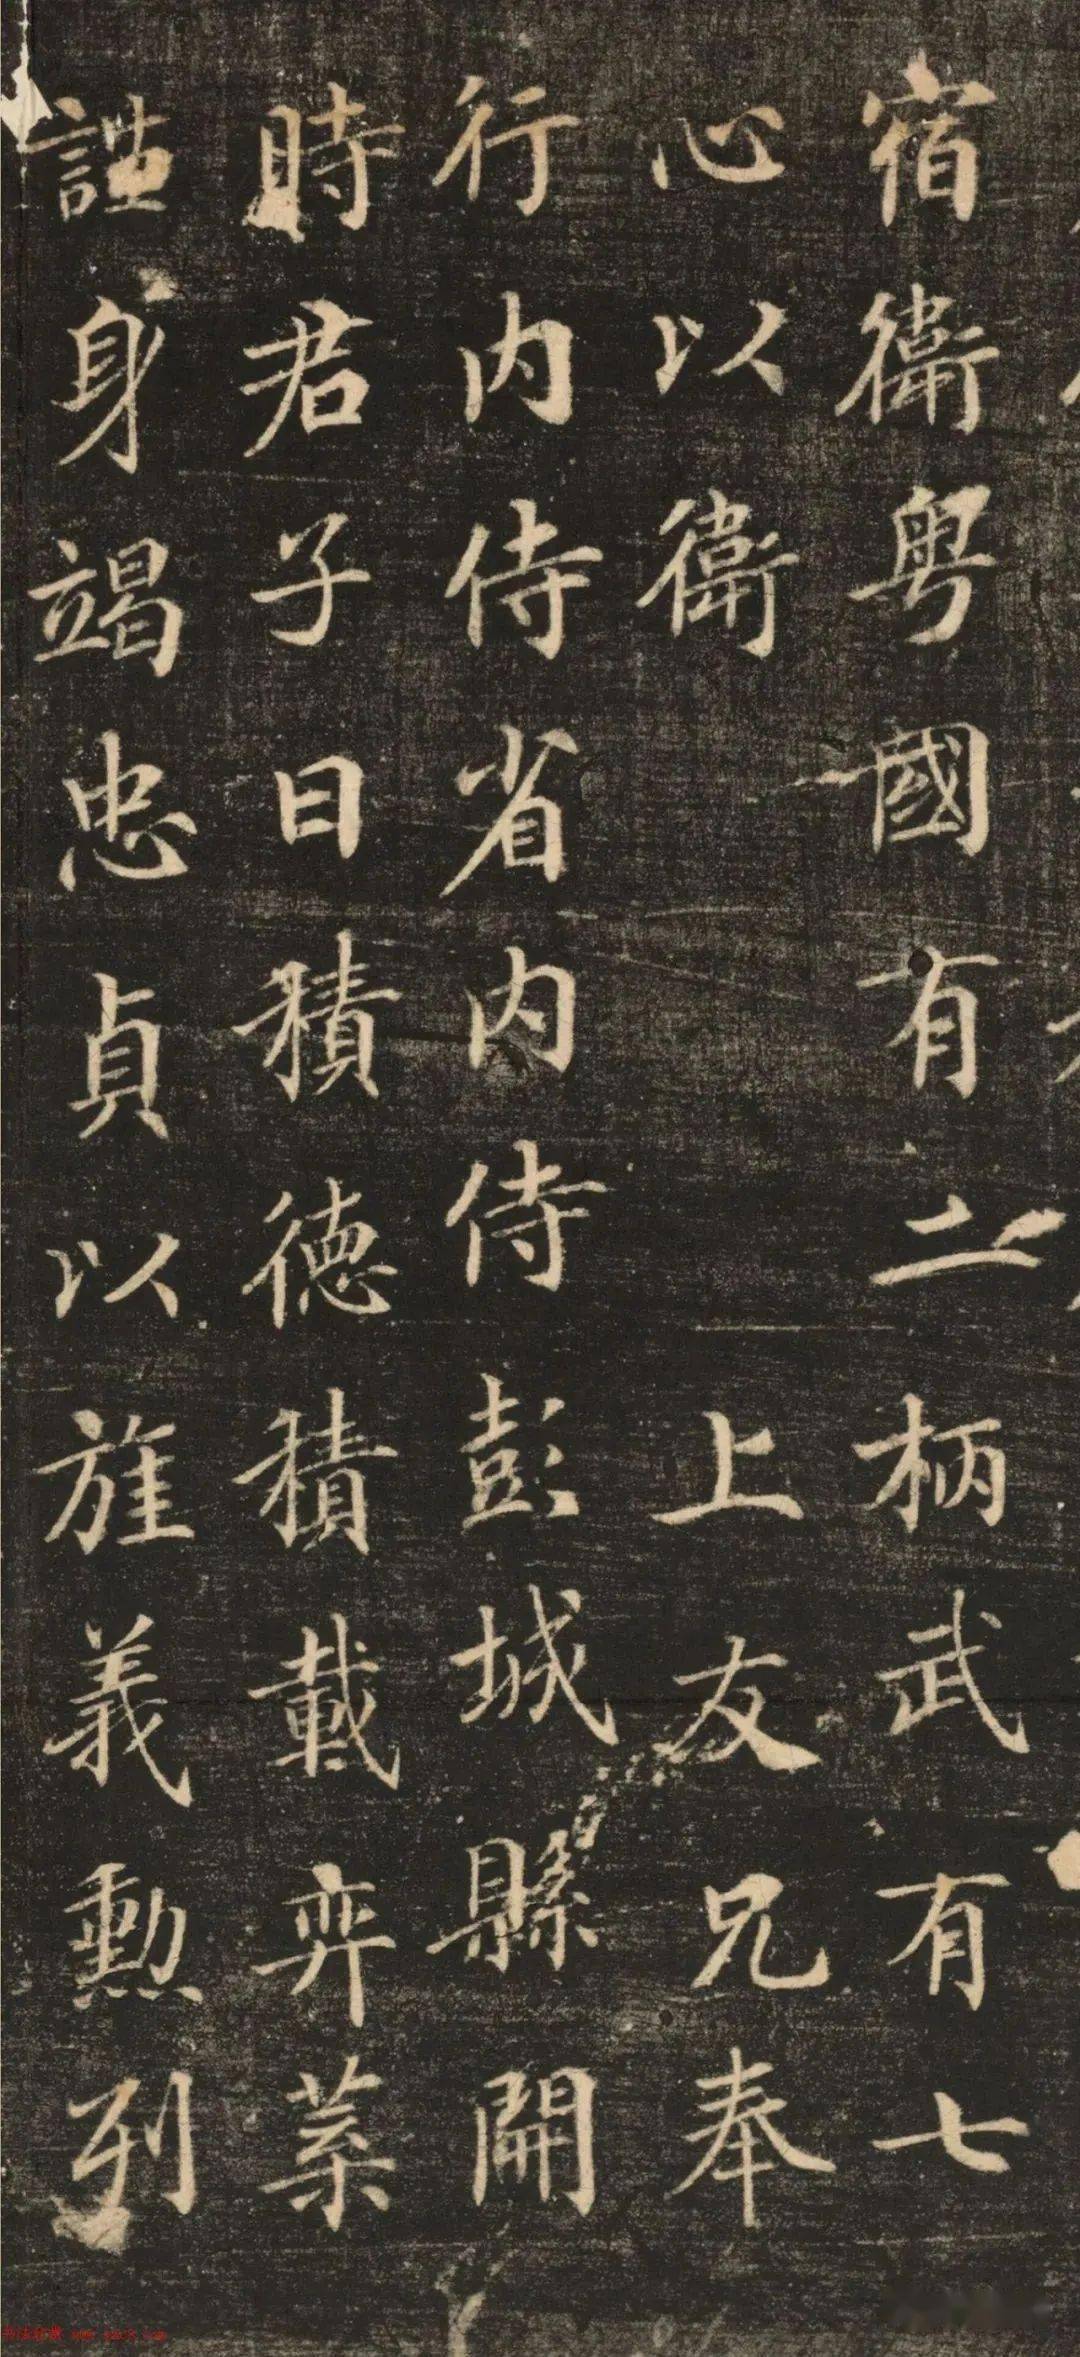 宿衛粵國有二柄武有七
心以衛 上友兄奉
行内侍省内侍彭城縣開
時君子曰積德積載弈葉
身竭忠貞以旌義勳列